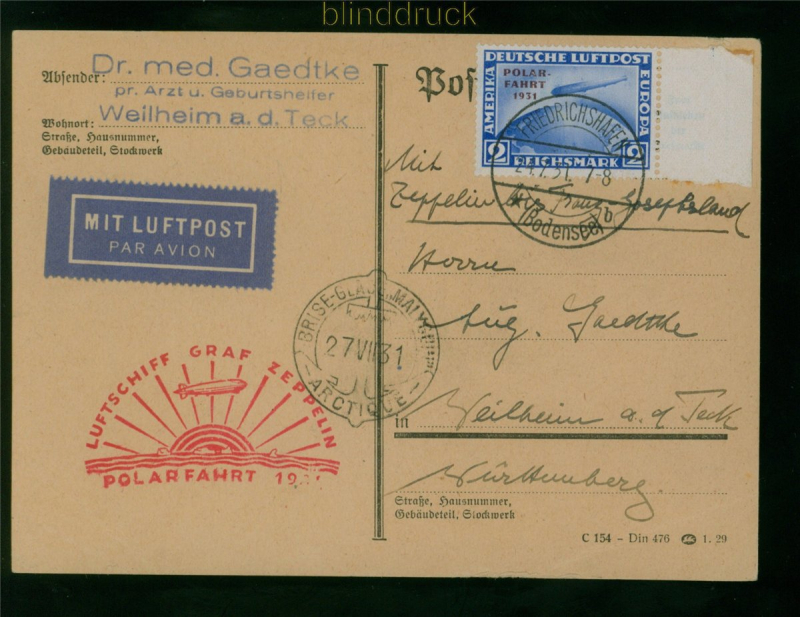 blinddruck
Absender: Dr. med. Gaedtke
pr. Arzt u. Geburtshelfer
Wohnort: Weilheim a. d. Teck
Straße, Hausnummer,
Gebäudeteil, Stockwerk
MIT LUFTPOST
PAR AVION
LUFTSCHIFF GRAF ZEPPELIN
POLARFAHRT 1931
BRISE-GLACE
27 VII 31
ARCTIQUE
Pos
DEUTSCHE LUFTPOST
AMERIKA
EUROPA
POLAR-
FAHRT
1931
2 REICHSMARK 2
FRIEDRICHSHAFEN
24.7.31. 7-8
b
(Bodensee)
Mit
Zeppelin bis Franz-Josephsland
Herrn
Aug. Gaedtke
in Weilheim a. d. Teck
Württemberg.
Straße, Hausnummer,
Gebäudeteil, Stockwerk
C 154 – Din 476 1. 29